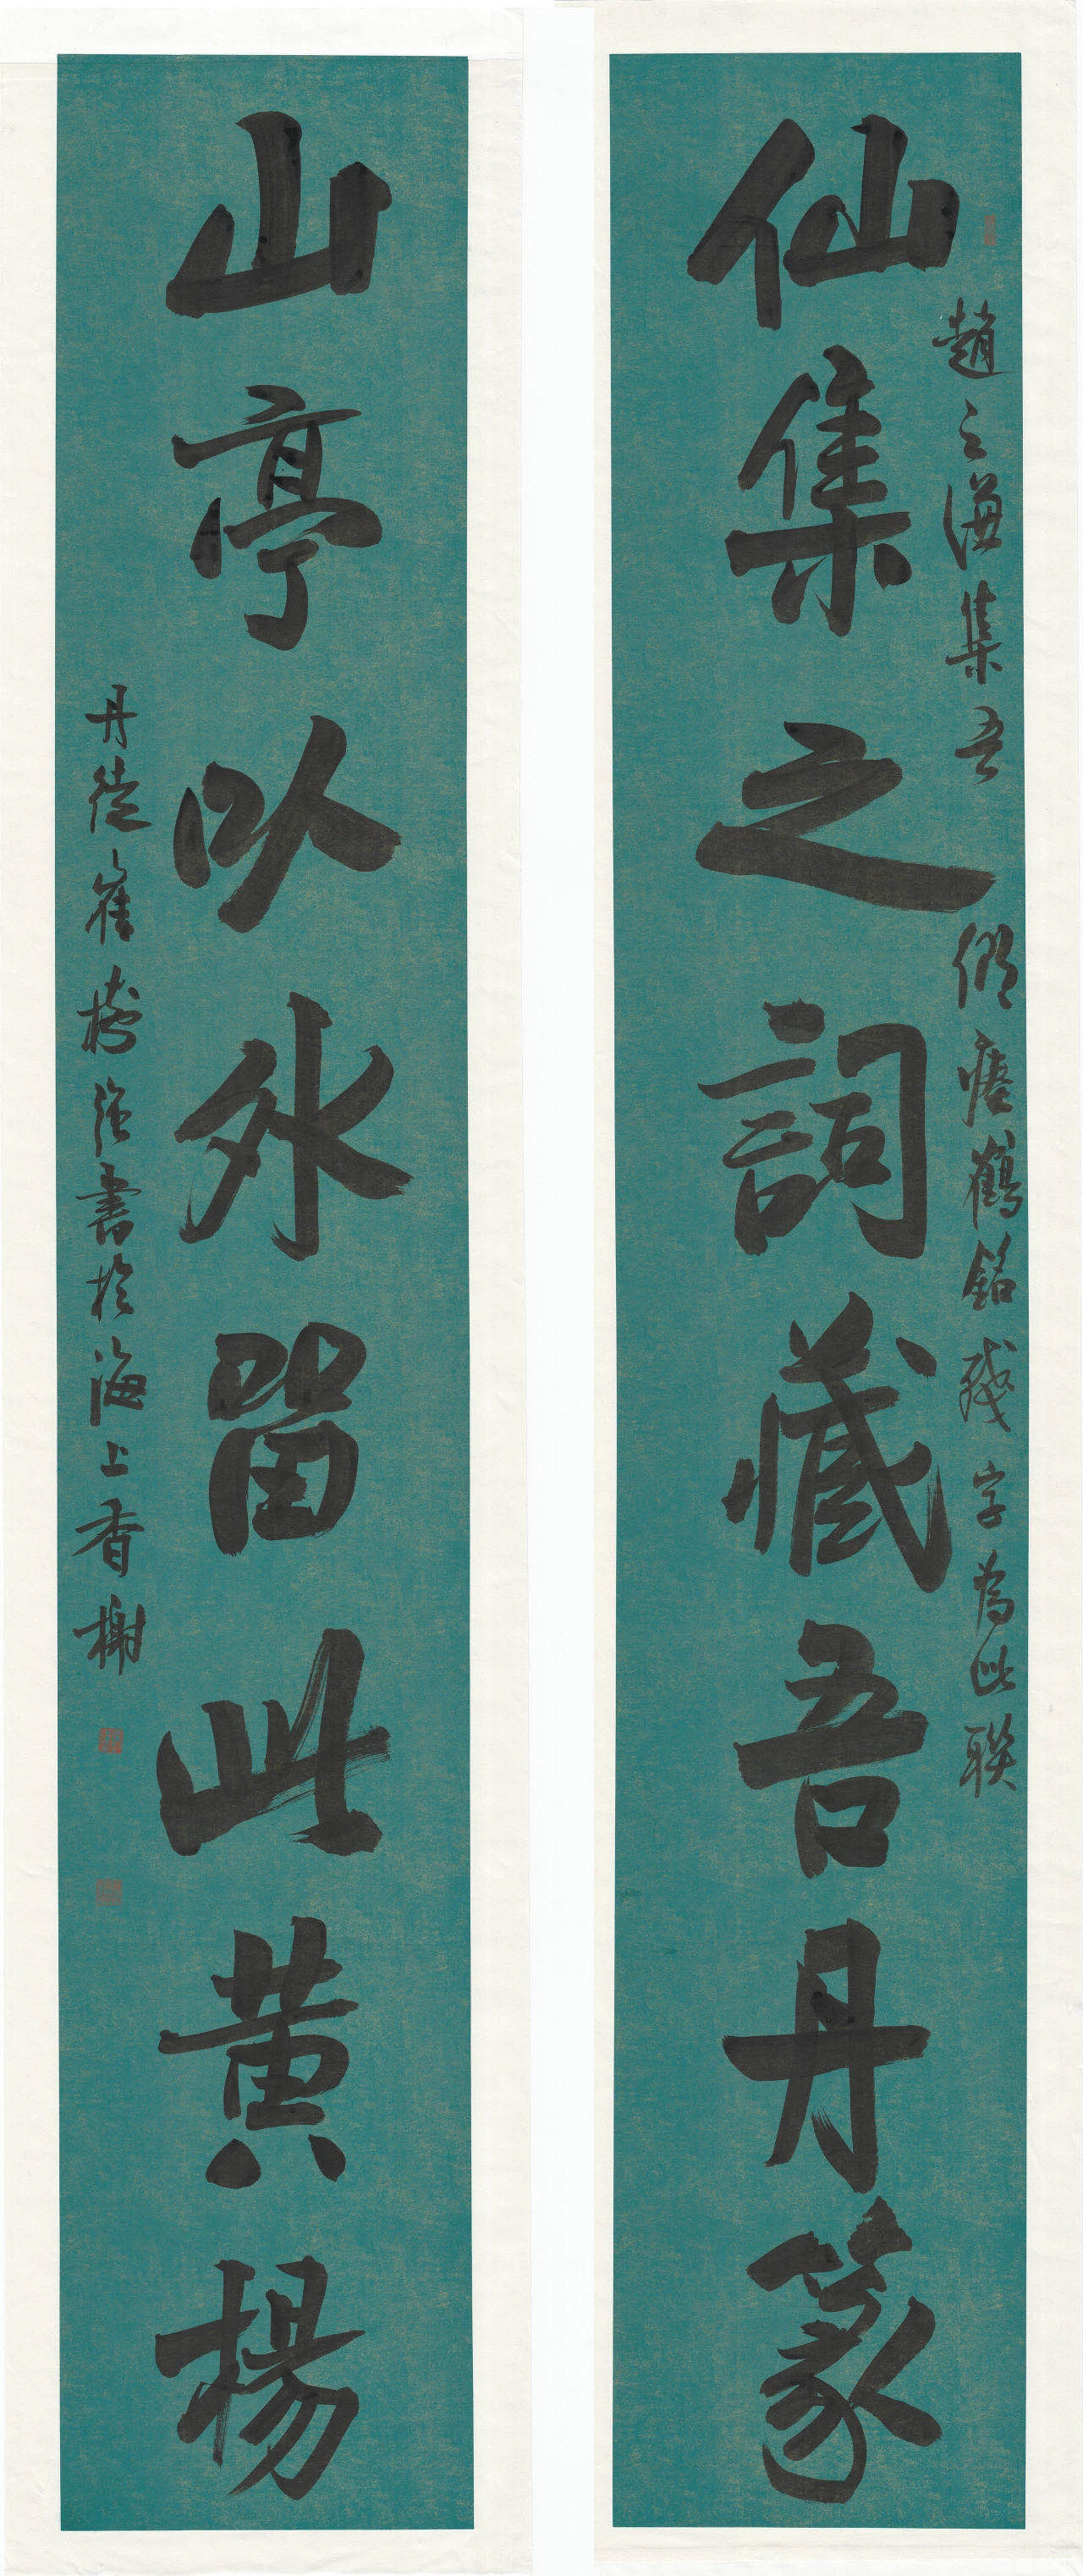 仙集之詞藏吾丹篆
趙之謙集吾鄉瘞鶴銘殘字為此聯
山亭以外留此黃楊
丹徒崔樹強書於海上香榭